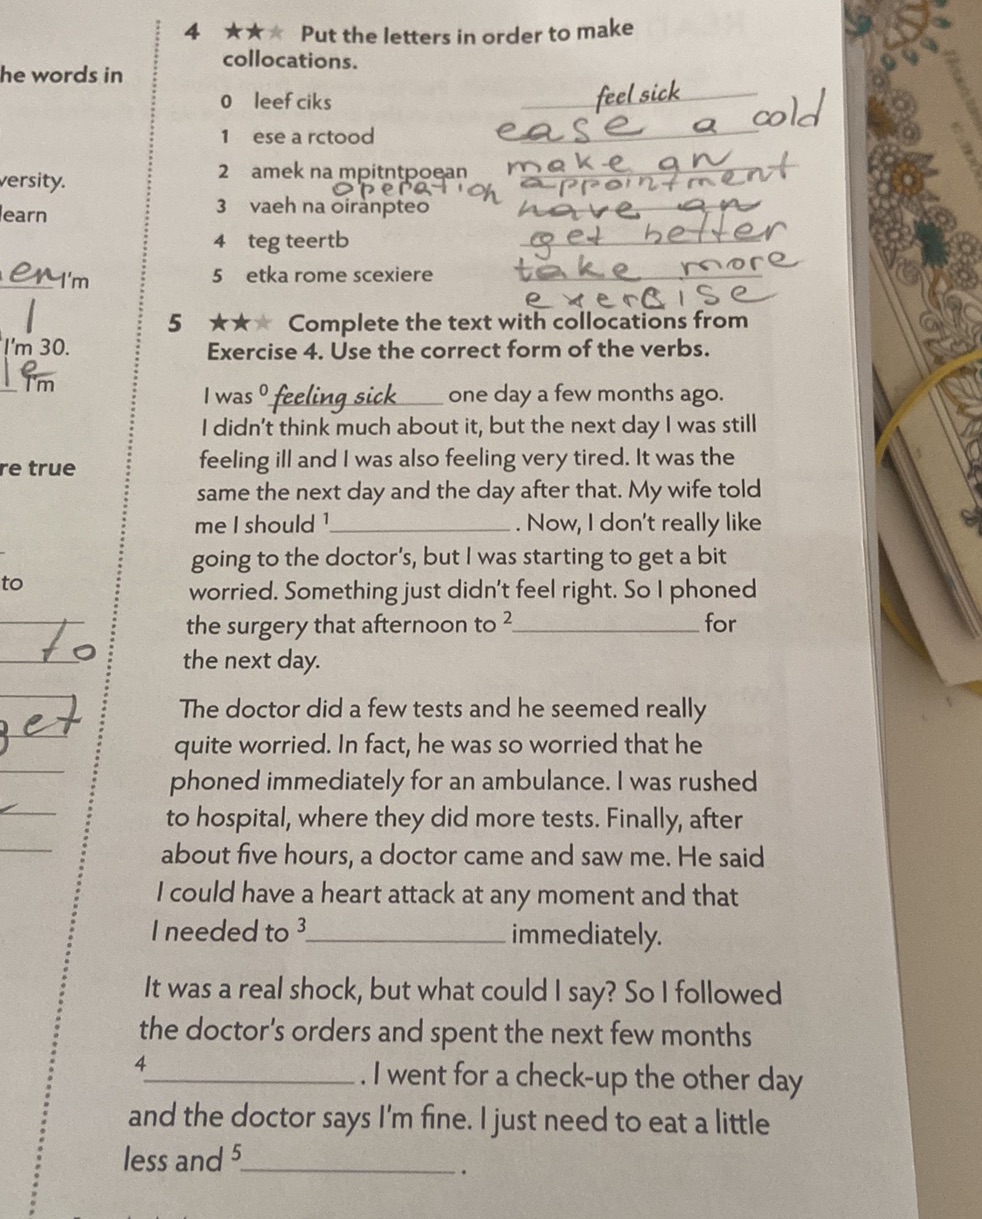 4 ★★★ Put the letters in order to make
collocations.
0 leef ciks feel sick
1 ese a rctood ease a cold
2 amek na mpitntpoean make an
appointment
3 vaeh na oiranpteo have an
operation
4 teg teertb get better
5 etka rome scexiere take more
exercise
5 ★★★ Complete the text with collocations from
Exercise 4. Use the correct form of the verbs.
I was ⁰ feeling sick one day a few months ago.
I didn't think much about it, but the next day I was still
feeling ill and I was also feeling very tired. It was the
same the next day and the day after that. My wife told
me I should ¹____________. Now, I don't really like
going to the doctor's, but I was starting to get a bit
worried. Something just didn't feel right. So I phoned
the surgery that afternoon to ²____________ for
the next day.
The doctor did a few tests and he seemed really
quite worried. In fact, he was so worried that he
phoned immediately for an ambulance. I was rushed
to hospital, where they did more tests. Finally, after
about five hours, a doctor came and saw me. He said
I could have a heart attack at any moment and that
I needed to ³____________ immediately.
It was a real shock, but what could I say? So I followed
the doctor's orders and spent the next few months
⁴____________. I went for a check-up the other day
and the doctor says I'm fine. I just need to eat a little
less and ⁵____________.
he words in
versity.
learn
en I'm
I'm 30.
I'm
re true
to
to
get